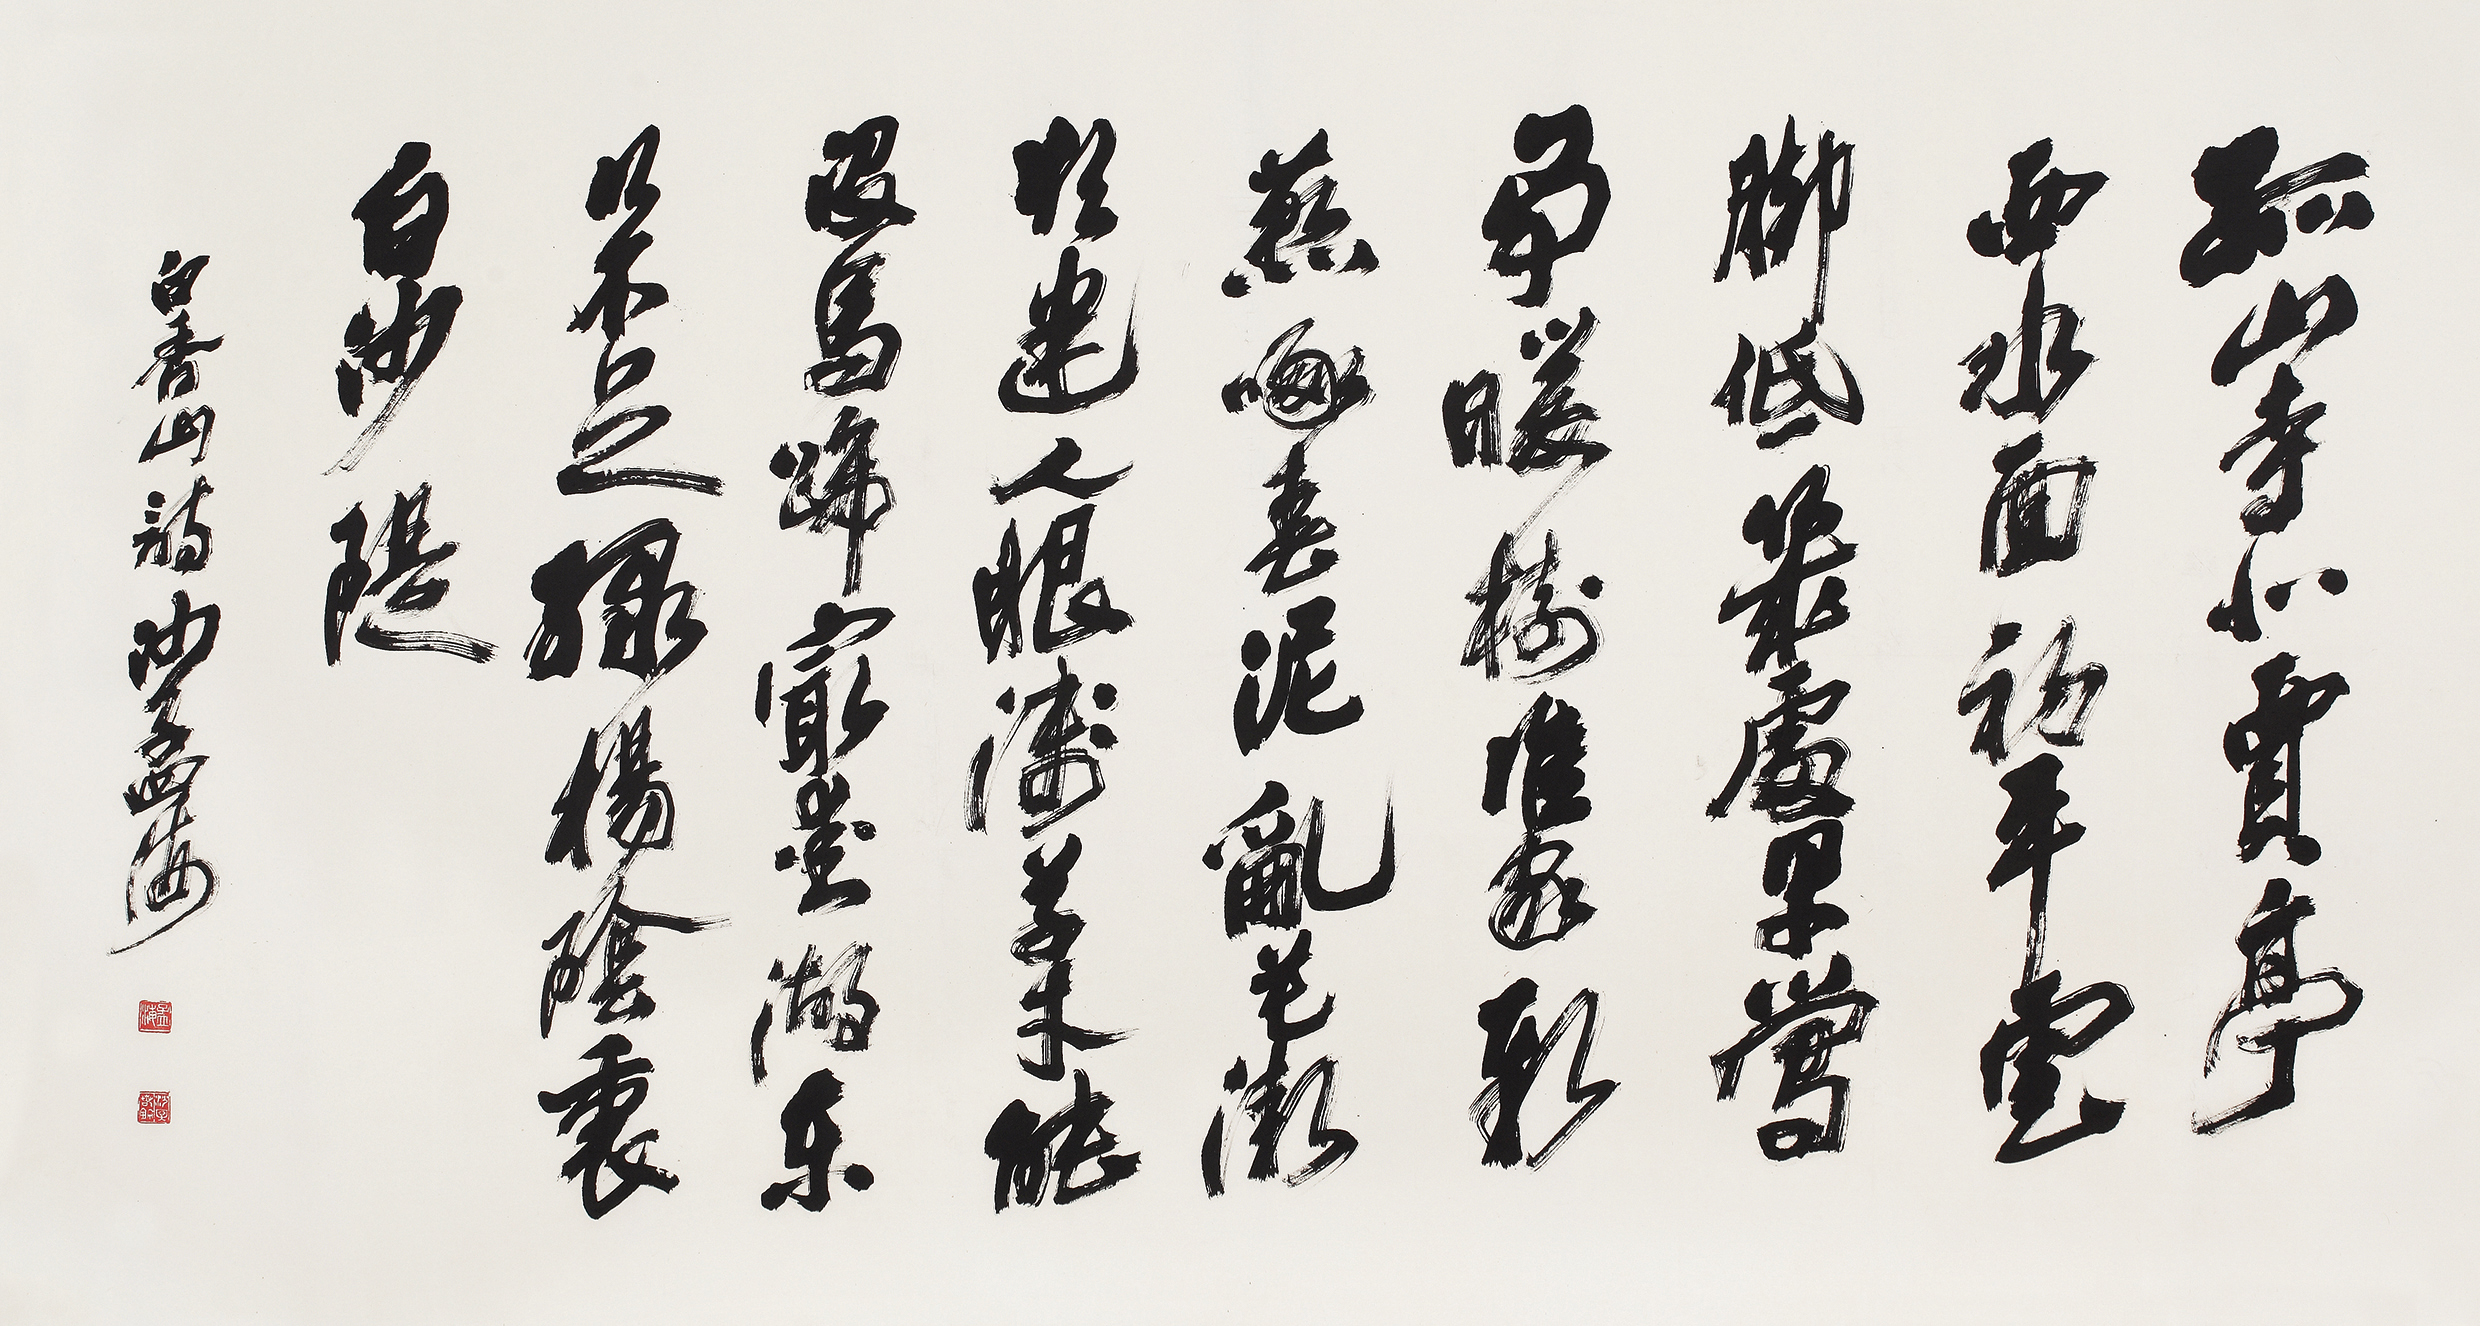 孤山寺北賈亭
西水面初平雲
脚低幾處早鶯
爭暖樹誰家新
燕啄春泥亂花漸
欲迷人眼淺草才能
没馬蹄最愛湖東
行不足緑楊陰裏
白沙隄
白香山詩 沙孟海
孟海